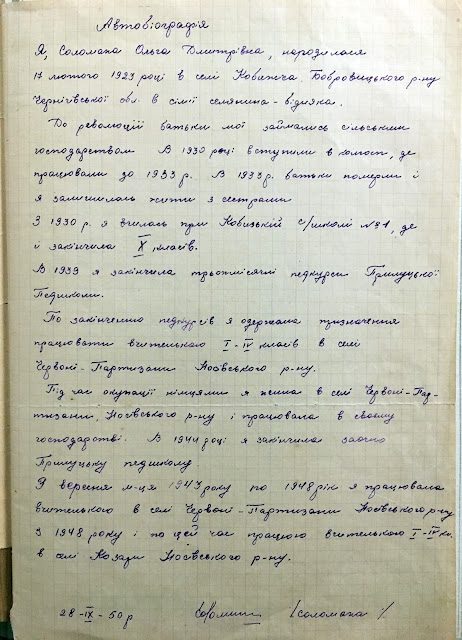 Автобіографія
Я, Соломаха Ольга Дмитрівна, народилася
17 лютого 1923 році в селі Кобижча Бобровицького р-ну
Чернігівської обл. в сім'ї селянина-бідняка.
До революції батьки мої займались сільським
господарством В 1930 році вступили в колгосп, де
працювали до 1933 р. В 1933 р. батьки померли і
я залишилась жити з сестрами
З 1930 р. я вчилась при Кобизькій с/школі №1, де
і закінчила X класів.
В 1939 я закінчила трьохмісячні педкурси Прилуцької
Педшколи.
По закінченню педкурсів я одержала призначення
працювати вчителькою I-IV класів в селі
Червоні-Партизани Носівського р-ну.
Під час окупації німцями я жила в селі Червоні-Пар-
тизани, Носівського р-ну і працювала в своему
господарстві. В 1944 році я закінчила заочно
Прилуцьку педшколу
З вересня м-ця 1943 року по 1948 рік я працювала
вчителькою в селі Червоні-Партизани Носівського р-ну
З 1948 року і по цей час працюю вчителькою I-IV кл.
в селі Козари Носівського р-ну.
28-IX-50 р (Соломаха)